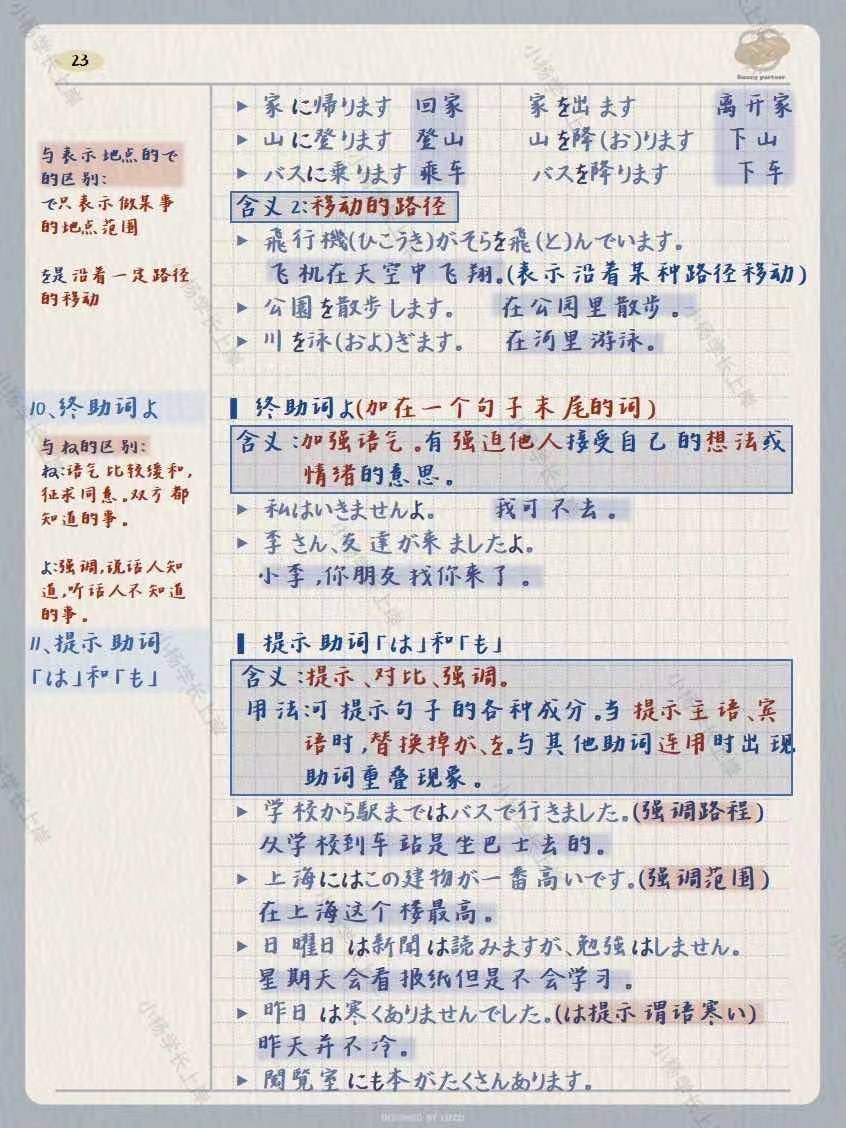 23
Sunny partner
家に帰ります 回家 家を出ます 离开家
山に登ります 登山 山を降(お)ります 下山
バスに乗ります 乘车 バスを降ります 下车
与表示地点的で
的区别:
で只表示做某事
的地点范围
を是沿着一定路径
的移动
含义2:移动的路径
飛行機(ひこうき)がそらを飛(と)んでいます。
飞机在天空中飞翔。(表示沿着某种路径移动)
公園を散歩します。 在公园里散步。
川を泳(およ)ぎます。 在河里游泳。
10、终助词よ
与ね的区别:
ね:语气比较缓和,
征求同意。双方都
知道的事。
よ:强调,说话人知
道,听话人不知道
的事。
终助词よ(加在一个句子末尾的词)
含义:加强语气。有强迫他人接受自己的想法或
情绪的意思。
私はいきませんよ。 我可不去。
李さん、友達が来ましたよ。
小李,你朋友找你来了。
11、提示助词
「は」和「も」
提示助词「は」和「も」
含义:提示、对比、强调。
用法:可提示句子的各种成分。当提示主语、宾
语时,替换掉が、を。与其他助词连用时出现
助词重叠现象。
学校から駅まではバスで行きました。(强调路程)
从学校到车站是坐巴士去的。
上海にはこの建物が一番高いです。(强调范围)
在上海这个楼最高。
日曜日は新聞は読みますが、勉強はしません。
星期天会看报纸但是不会学习。
昨日は寒くありませんでした。(は提示谓语寒い)
昨天并不冷。
閲覧室にも本がたくさんあります。
小杨学长上岸